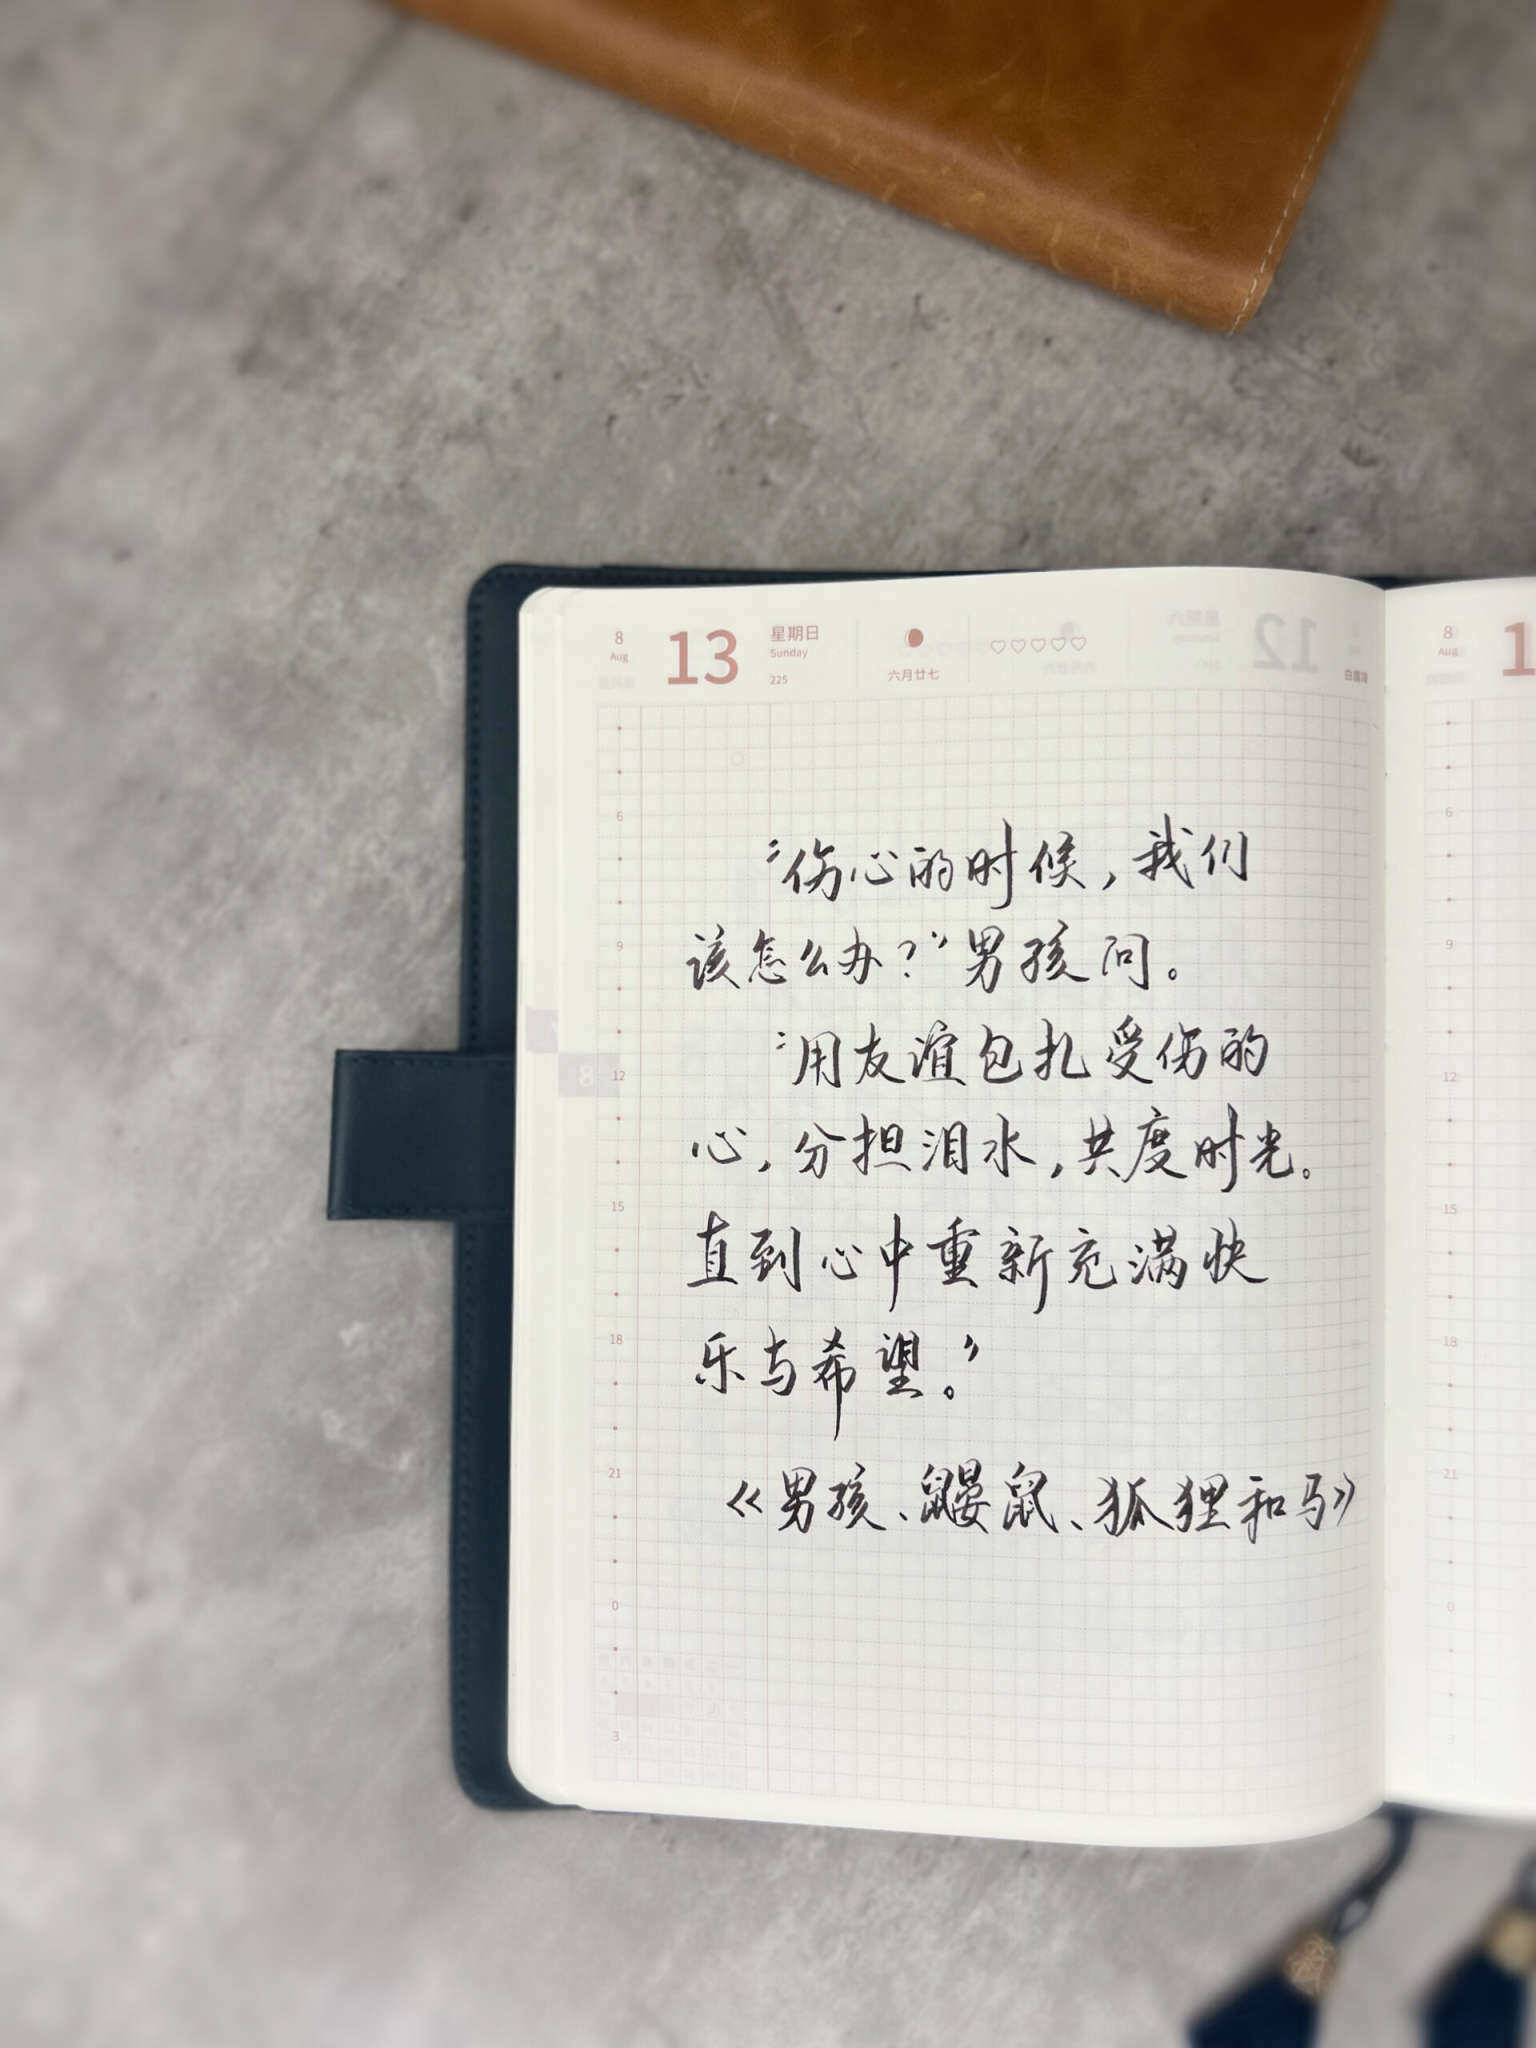 8
Aug
13
星期日
Sunday
225
六月廿七
♡♡♡♡♡
8
Aug
1
6
9
12
15
18
21
0
3
8
“伤心的时候，我们
该怎么办？”男孩问。
“用友谊包扎受伤的
心，分担泪水，共度时光。
直到心中重新充满快
乐与希望。”
《男孩、鼹鼠、狐狸和马》
6
9
12
15
18
21
0
3